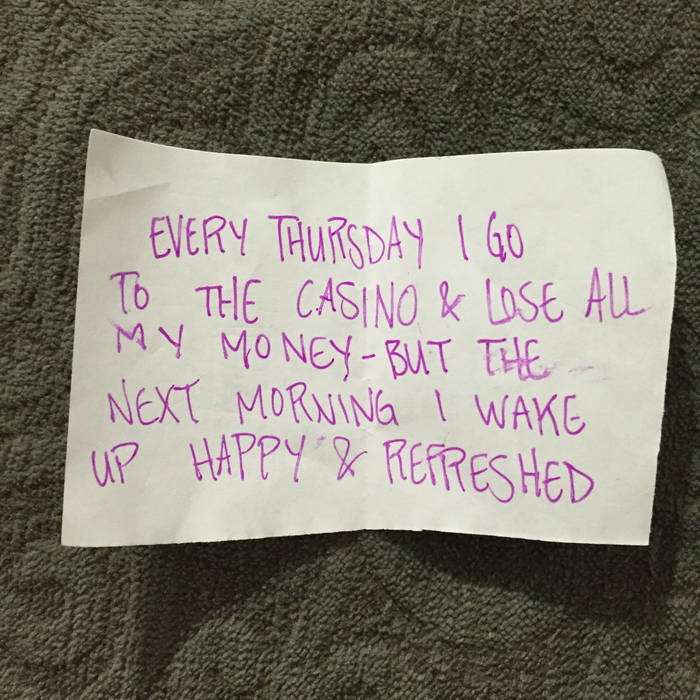 EVERY THURSDAY I GO
TO THE CASINO & LOSE ALL
MY MONEY - BUT THE
NEXT MORNING I WAKE
UP HAPPY & REFRESHED